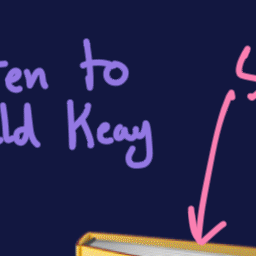 ten to
ld Keay